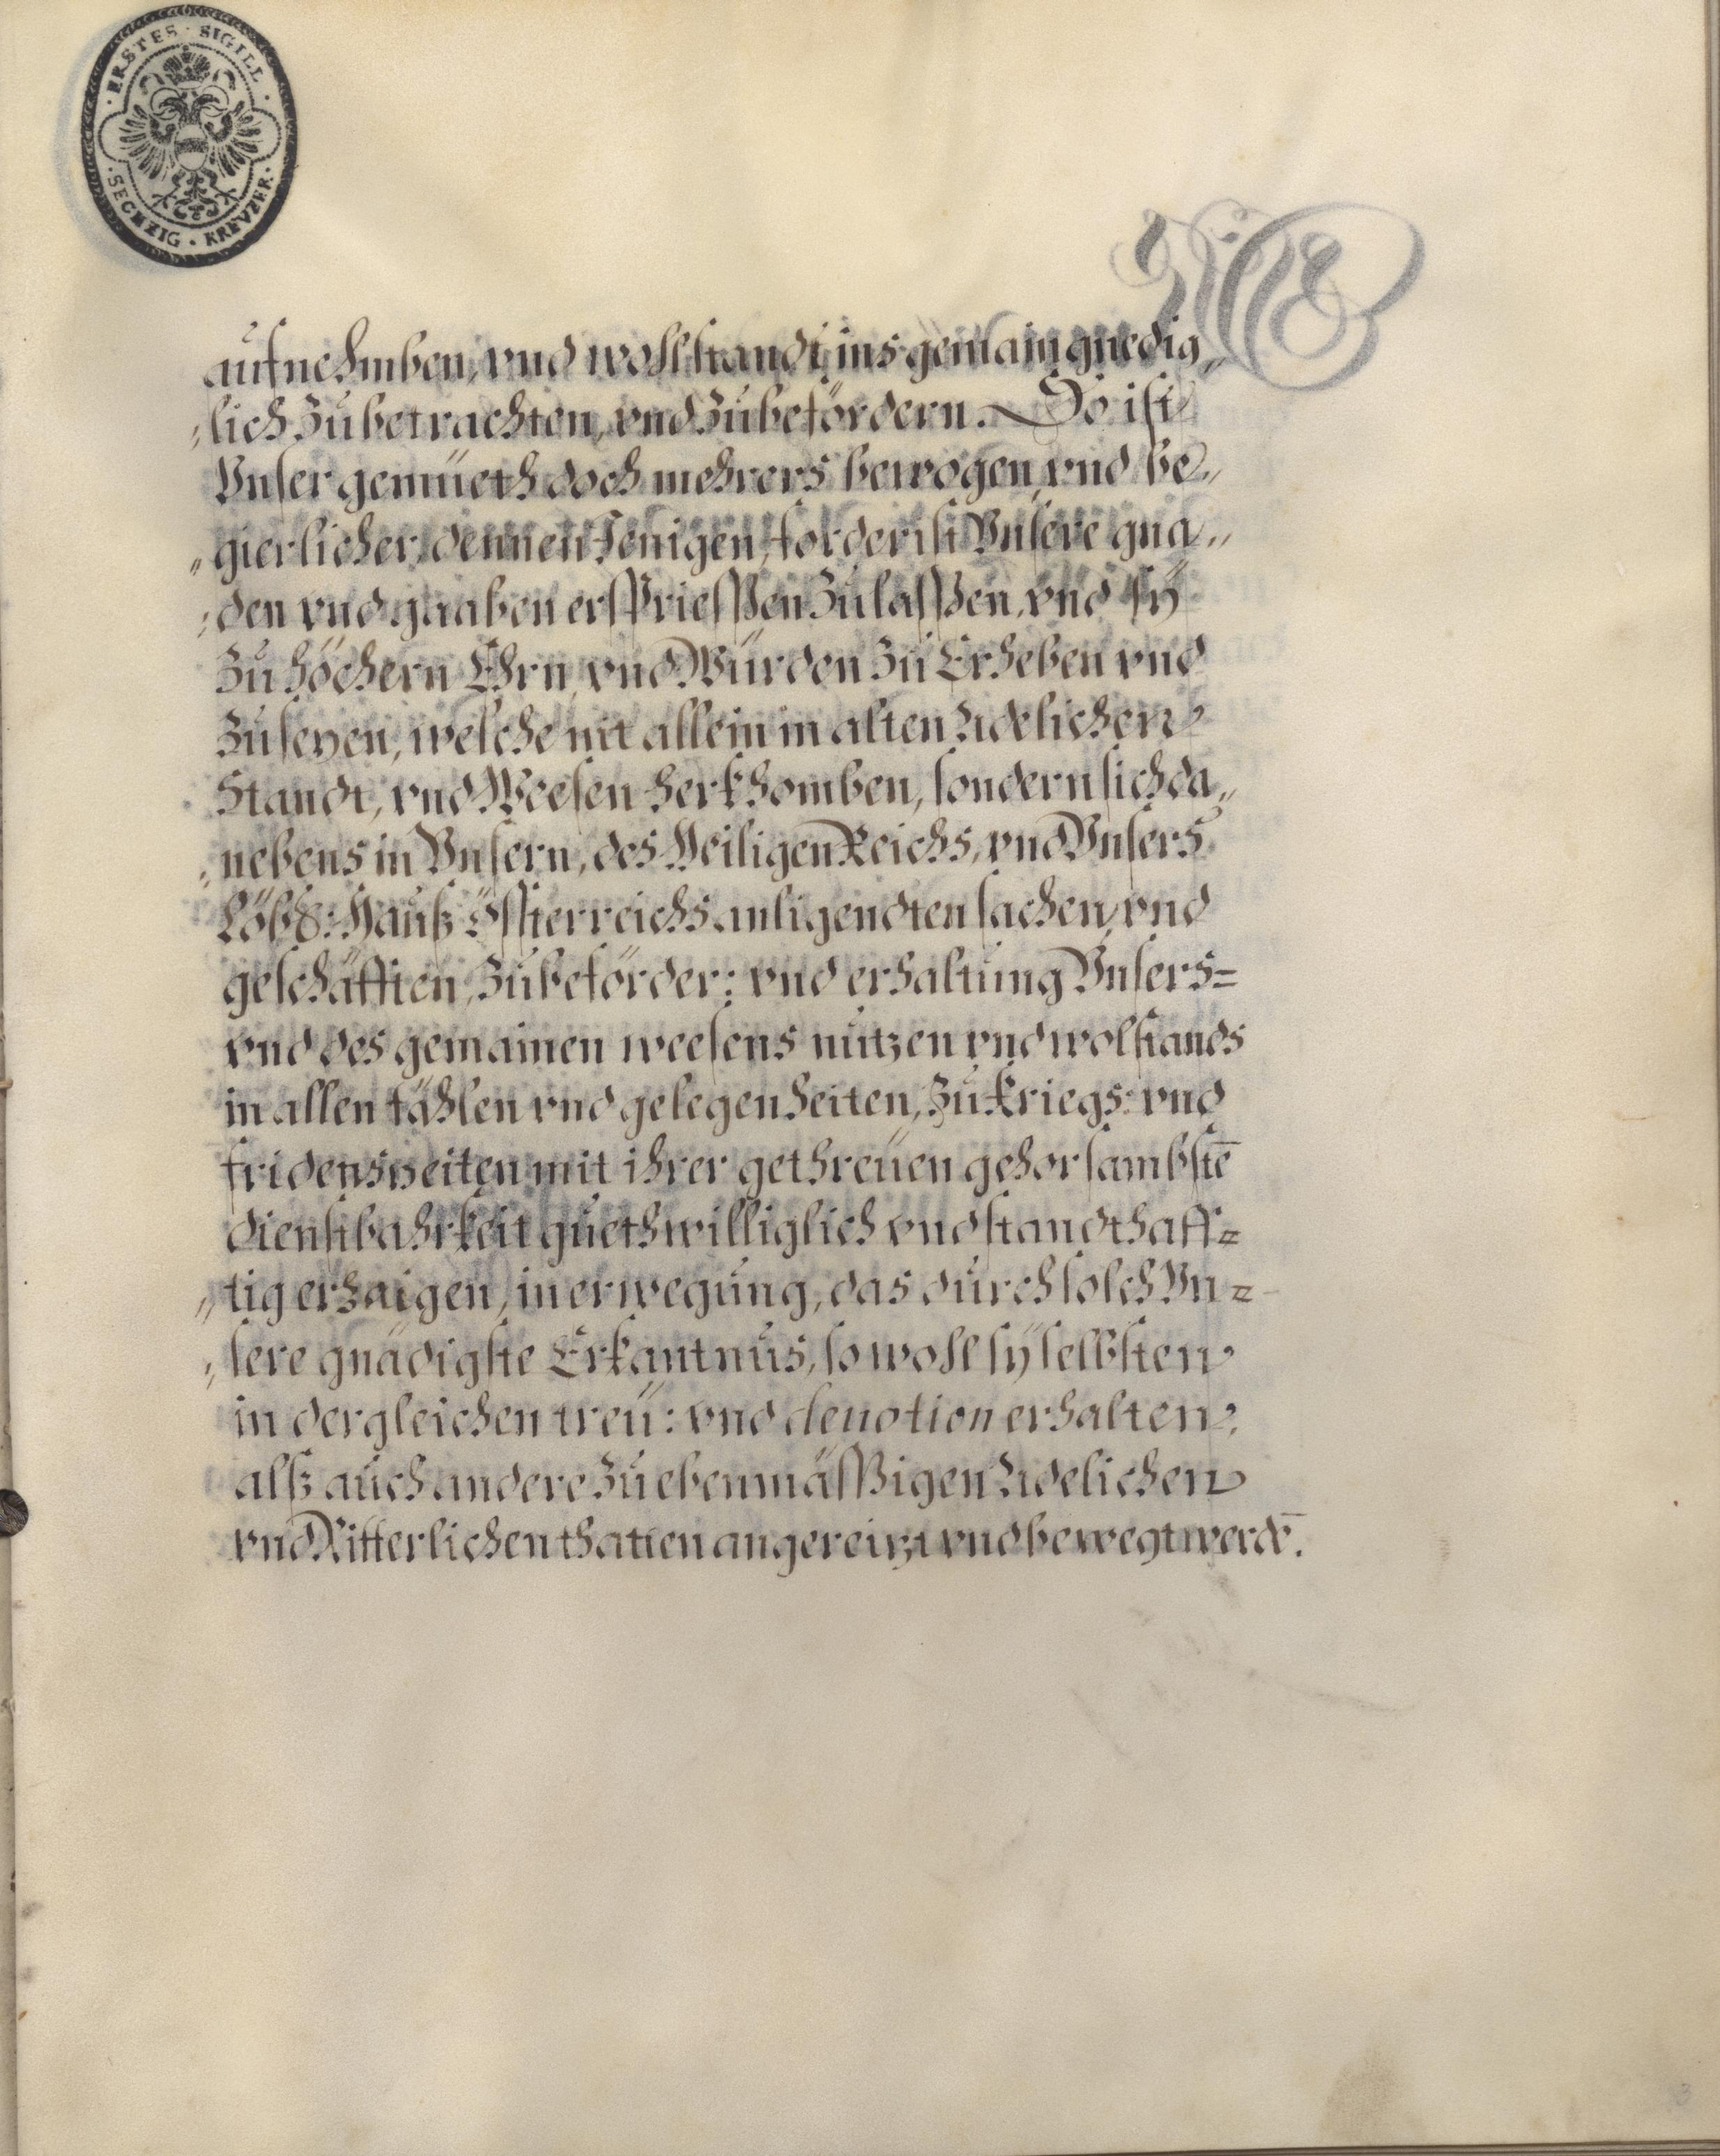 ERSTES · SIGILL ·
· SECHZIG · KREVZER ·
aufnehmben, vnd wohlstandt ins gemain gnedig„
„lich Zu betrachten, vnd Zubefördern. So ist
Vnser gemüeth doch mehrers bewogen, vnd be„
„gierlicher, dennen Jenigen, forderist Vnsere gna„
„den vnd gaaben ersprießen Zulaßen, vnd sÿ
Zu höchern Ehrn, vnd Würden Zu Erheben vnd
Zusezen, welche nit allein in alten Adelichen
Standt, vnd Weesen herkhomben, sondern sich da„
„nebens in Vnsern, des Heiligen Reichs, vnd Vnsers
Löbl: Hauß Össterreichs anligendten sachen, vnd
geschäfften, Zubeförder: vnd erhaltung Vnsers=
vnd des gemainen weesens nutzen vnd wolstands
in allen fählen vnd gelegenheiten, Zu kriegs: vnd
fridenszeiten mit ihrer gethreuen gehorsambstē
dienstbahrkeit guethwilliglich vnd standthaff=
„tig erzaigen, in erwegung, das durch solch Vn=
„sere gnädigste Erkantnus, so wohl sÿ selbsten
in dergleichen treü: vnd deuotion erhalten,
alß auch andere Zu ebenmäßigen Adelichen
vnd Ritterlichen thatten angereitzt vnd bewegt werdē.
3